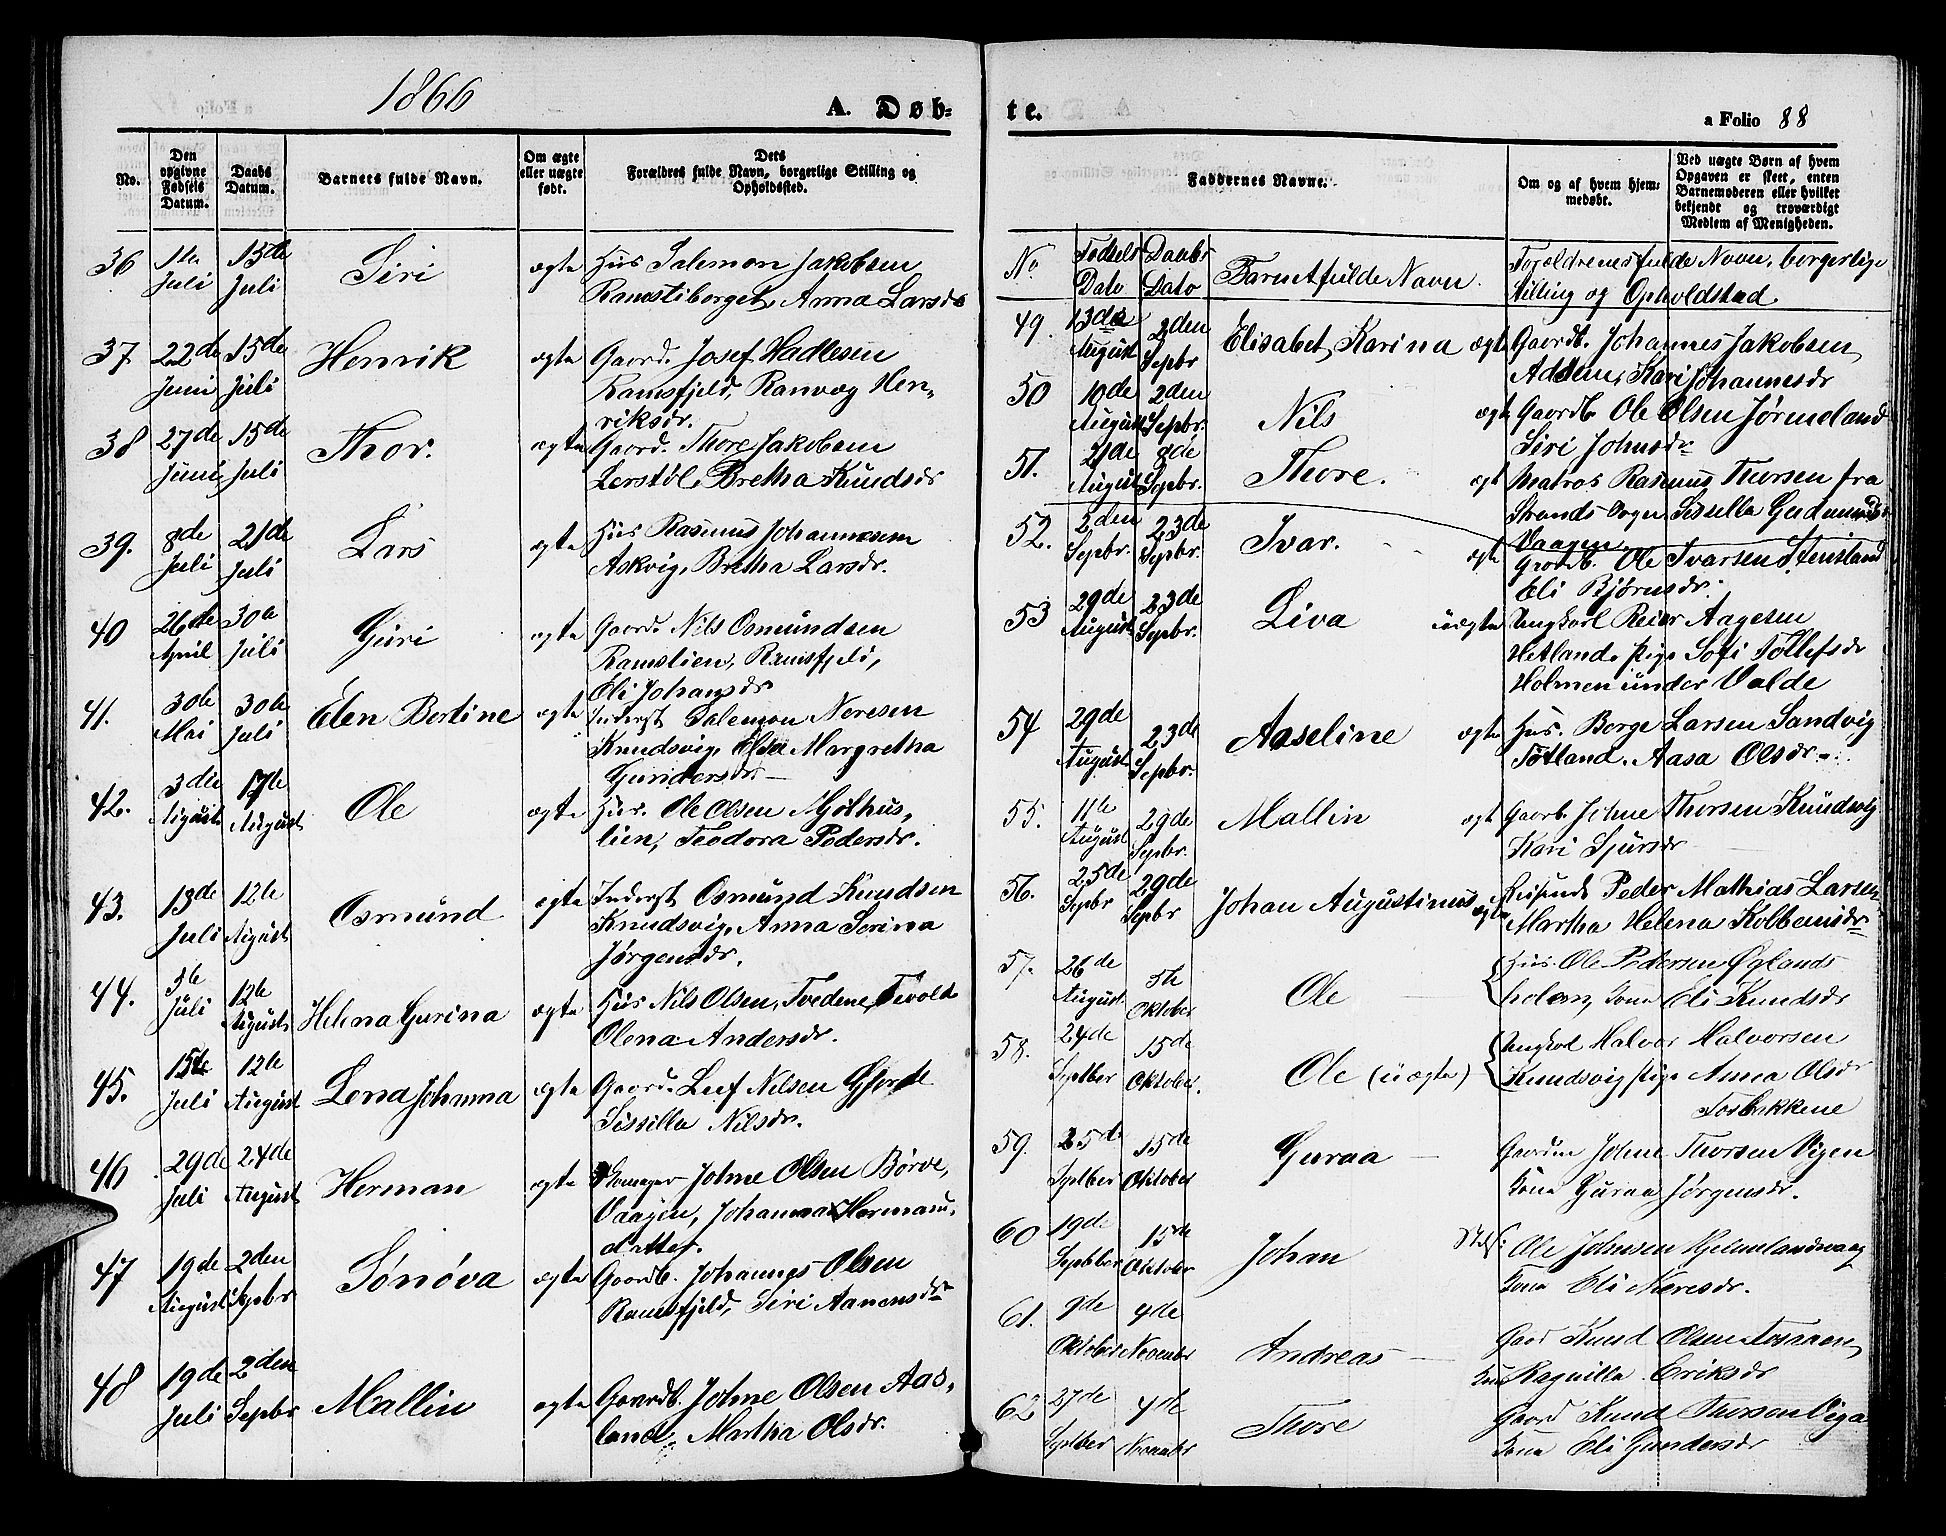 1866
A. Døb-
No.
Den opgivne Fødsels Datum.
Daabs Datum.
Barnets fulde Navn.
Om ægte eller uægte født.
Dets Forældres fulde Navn, borgerlige Stilling og Opholdssted.
36 1te Juli 15de Juli Siri ægte Hus Salemon Jakobsen
Ramstiborget, Anna Larsdr
37 22de Juni 15de Juli Henrik ægte Gaard. Josef Hadlesen
Ramsfjeld, Ranvæg Hen-
riksdr.
38 27de Juni 15de Juli Thor. ægte Gaard. Thore Jakobsen
Lerstøl, Bretha Knudsdr
39. 8de Juli 21de Juli Lars ægte Hus Rasmus Johannesen
Askvig, Bretha Larsdr.
40 26de April 30te Juli Guri ægte Gaard. Nils Osmundsen
Ramslien, Ramsfjeld,
Eli Johansdr
41. 30te Mai 30te Juli Elen Bertine ægte Inderst Salemon Neresen
Knudsvig, Elsa Margretha
Gundersdr
42. 3die August 12te August Ole ægte Hus. Ole Olsen Mølhus,
lien, Teodora Pedersdr.
43. 13de Juli 12te August Osmund ægte Inderst Osmund Knudsen
Knudsvig, Anna Serina
Jørgensdr.
44. 5te Juli 12te August Helena Gurina ægte Hus Nils Olsen, Tvedene, Tivolt
Olena Andersdr.
45. 15de Juli 12te August Lena Johanna ægte Gaard. Leef Nilsen Gjerde
Sissilla Nilsdr.
46 29de Juli 24de August Herman ægte Johne Olsen Børve,
Vaagen, Johanna Herman-
datter.
47 19de August 2den Sepbr Sønøva ægte Gaardb. Johannes Olsen
Ramsfjeld, Siri Aanensdr
48 19de Juli 2den Sepbr Mallin ægte Gaardb. Johne Olsen Aas-
land, Martha Olsdr.
te.
a Folio 88
Faddernes Navne.
Om og af hvem hjem-
medøbt.
Ved uægte Børn af hvem
Opgaven er skeet, enten
Barnemoderen eller hvilket
bekjendt og troværdigt
Medlem af Menigheden.
No Fødsels Dato Daabs Dato Barnet fulde Navn. Foreldrenes fulde Navn, borgerlige
Stilling og Opholdsted
49. 13de August 2den Sepbr Elisabet Karina ægte Gaardb. Johannes Jakobsen
Kari Johannesdr
50 10de August 2den Sepbr. Nils ægte Gaardb Ole Olsen Jørmeland
Siri Johnsdr
51. 21de August 8de Sepbr. Thore. ægt Matros Rasmus Thorsen fra
Strands Sogn Sissella Gudmundsdr
Vaagen
52. 2den Sepbr. 23de Sepbr. Ivar. ægte Gaardb. Ole Ivarsen Stensland
Eli Bjørnsdr.
53 29de August 23de Sepbr. Liva uægte Ungkarl Reier Aagesen
Hetland, Pige Sofi Tollefsdr
Holmen under Valde
54 29de August 23de Sepbr. Aaseline ægte Hus. Borge Larsen Sandvig
Tøtland. Aasa Olsdr.
55. 11te August 29de Sepbr. Mallin ægt Gaardb. Johne Thorsen Knudsvig
Kari Sjursdr
56. 25de Sepbr 29de Sepbr Johan Augustinus ægte Reisende Peder Mathias Larsen
Martha Helena Kolbensdr
57. 26de August 5te Oktober Ole Hus. Ole Pedersen Øglands
holen, Kona Eli Knudsdr
58. 24de Septber 15de Oktober. Ole (uægte) Ungkarl Halvor Halvorsen
Knudsvig, Pige Anna Olsdr
Fosbekkene
59. 25de Septber 15de Oktober Guraa Gaardm Johne Thorsen Vigen
Kona Guraa Jørgensdr.
60 19de Septber 15de Oktober Johan Ole Johnsen Hjelmelandsvaag
Kona Eli Neresdr.
61. 9de Oktober 4de Novembr Andreas Gaard Knud Olsen
Kona Ragnilla Eriksdr
62 27de Septber 4de Novembr Thore Gaard Knud Thorsen Viga
Kona Eli Gundersdr